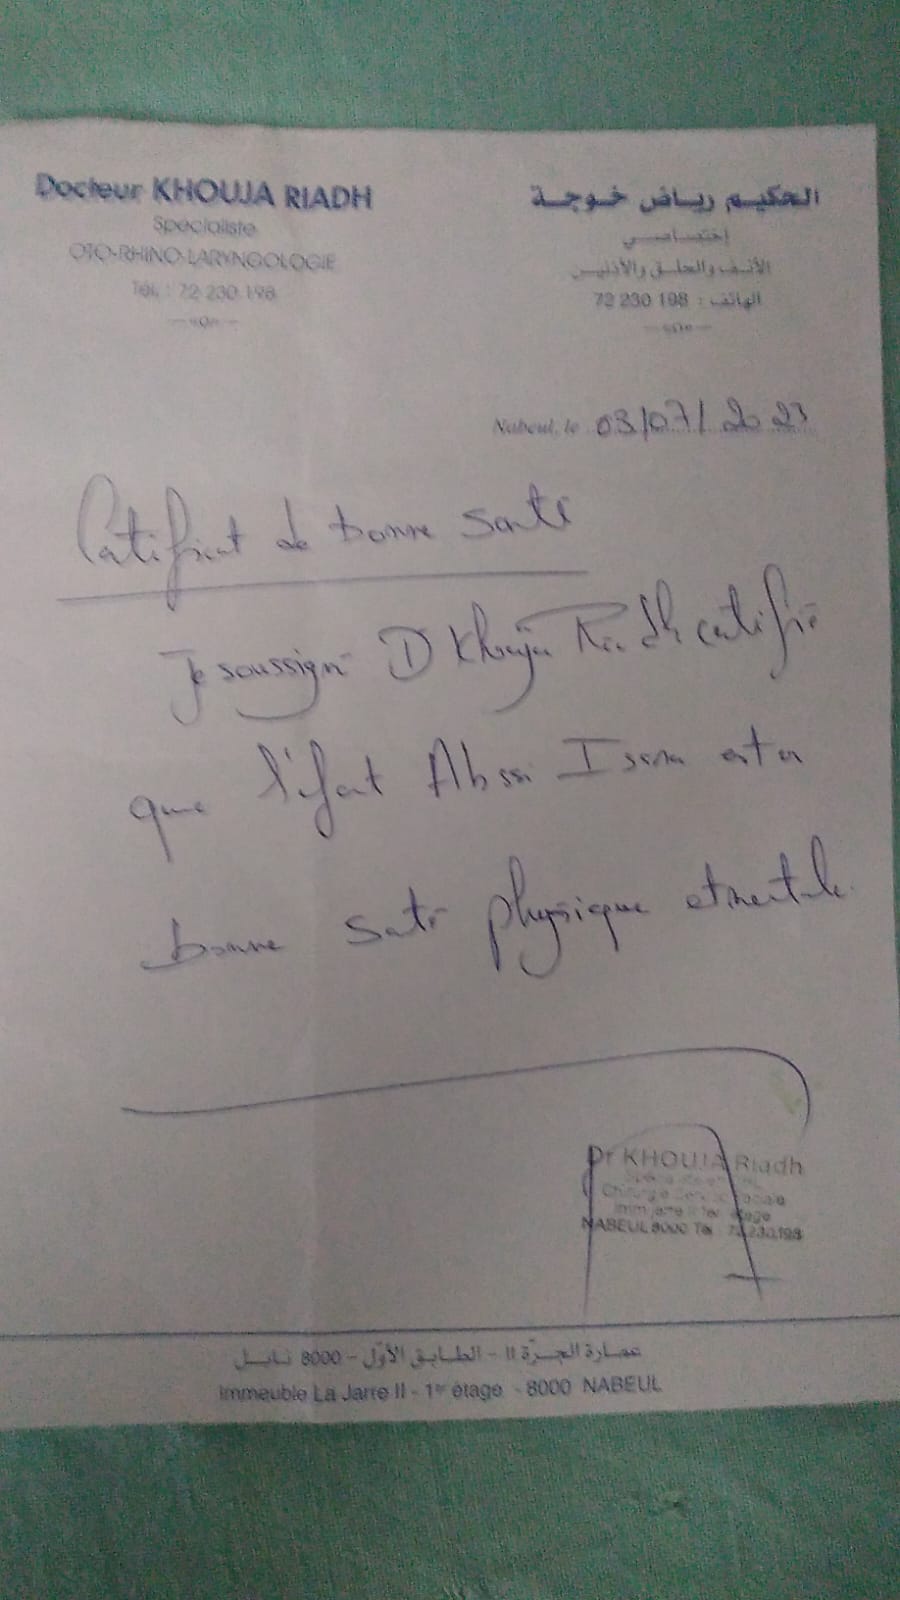 Docteur KHOUJA RIADH
Spécialiste
OTO-RHINO-LARYNGOLOGIE
Tél. : 72 230 198
الحكيم رياض خوجة
إختصاصي
الأنف والحلق والأذنين
الهاتف : 198 230 72
Nabeul, le 03/07/2023
Certificat de bonne santé
Je soussigné D Khouja Riadh certifie
que l'enfant Abssi Issra est en
bonne santé physique et mentale
Dr KHOUJA Riadh
Chirurgie
Imm jarre II 1er étage
NABEUL 8000 Tél : 72.230.198
عمارة الجرّة II - الطابق الأوّل - 8000 نابل
Immeuble La Jarre II - 1er étage - 8000 NABEUL